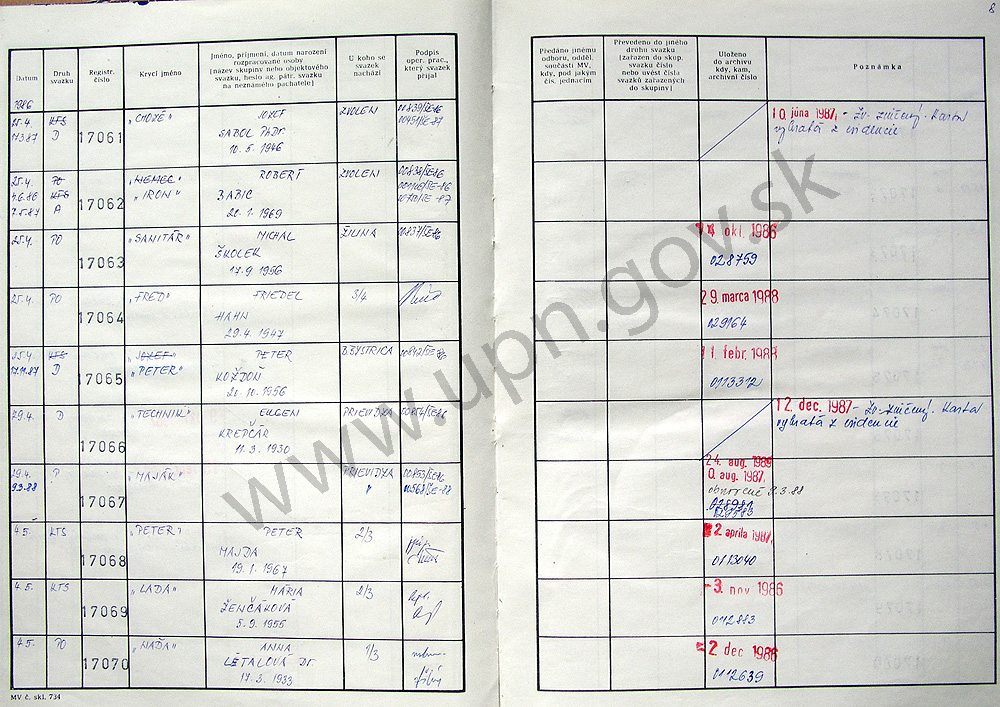 8
Datum
Druh svazku
Registr. číslo
Krycí jméno
Jméno, příjmení, datum narození rozpracované osoby
[název skupiny nebo objektového svazku, heslo ag. pátr. svazku na neznámého pachatele]
U koho se svazek nachází
Podpis oper. prac., který svazek přijal
Předáno jinému odboru, odděl. součásti MV, kdy, pod jakým čís. jednacím
Převedeno do jiného druhu svazku [zařazen do skup. svazku číslo nebo uvést čísla svazků zařazených do skupiny]
Uloženo do archivu kdy, kam, archivní číslo
Poznámka
1986
25.4. KTS 17061 JOZEF ZVOLEN
D SABOL PhDr
10. 5. 1946
10. júna 1987, - Zv. zničený. Karta
vybratá z evidencie
25.4. PO 17062 "NEMEC" ROBERT ZVOLEN
KTS "IRON" BABIC
A 20. 1. 1969
25.4. PO 17063 "SANITÁR" MICHAL ŽILINA
ŠKOLEK
17. 9. 1956
okt 1986
028759
25.4. PO 17064 "FRED" FRIEDEL 3/4
HAHN
29. 4. 1947
29. marca 1988
029164
25.4. KTS 17065 "JOZEF" PETER B.BYSTRICA
17.11.87 D "PETER" KOŽDOŇ
20. 10. 1956
febr. 1988
0113312
29.4. D 17066 "TECHNIK" EUGEN PRIEVIDZA
KREPČÁR
11. 3. 1930
12. dec. 1987 - Zv. zničený. Karta
vybratá z evidencie
29.4. P 17067 "MAJÁK" PRIEVIDZA
9.3.88 "
24. aug. 1989
0. aug. 1987,
obnovené 9.3.88
029583
4.5. KTS 17068 "PETER" PETER 2/3
MAJDA
19. 1. 1967
2. apríla 1987,
0113040
4.5. KTS 17069 "LADA" MÁRIA 2/3
ŽENČÁKOVÁ
5. 9. 1955
3. nov 1986
0112883
4.5. PO 17070 "NAĎA" ANNA 1/3
LÉTALOVÁ Dr.
17. 3. 1933
2. dec 1986
0112639
MV č. skl. 734
www.upn.gov.sk